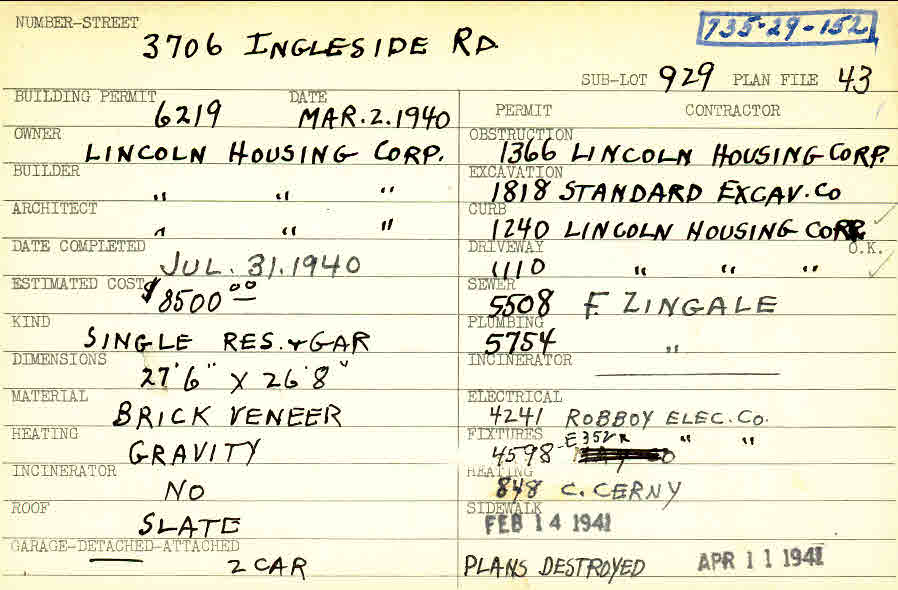 NUMBER-STREET
3706 INGLESIDE RD.
735-29-152
SUB-LOT 929 PLAN FILE 43
BUILDING PERMIT DATE
6219 MAR.2.1940
OWNER
LINCOLN HOUSING CORP.
BUILDER
" " "
ARCHITECT
" " "
DATE COMPLETED
JUL. 31. 1940
ESTIMATED COST
$8500 00
KIND
SINGLE RES. & GAR
DIMENSIONS
27'6" X 26'8"
MATERIAL
BRICK VENEER
HEATING
GRAVITY
INCINERATOR
NO
ROOF
SLATE
GARAGE-DETACHED-ATTACHED
2 CAR
PERMIT CONTRACTOR
OBSTRUCTION
1366 LINCOLN HOUSING CORP.
EXCAVATION
1818 STANDARD EXCAV. CO
CURB
1240 LINCOLN HOUSING CORP.
DRIVEWAY O.K.
1110 " " "
SEWER
5508 F. ZINGALE
PLUMBING
5754 "
INCINERATOR
ELECTRICAL
4241 ROBBOY ELEC. CO.
FIXTURES
4598 " "
HEATING
848 C. CERNY
SIDEWALK
FEB 14 1941
PLANS DESTROYED APR 11 1941